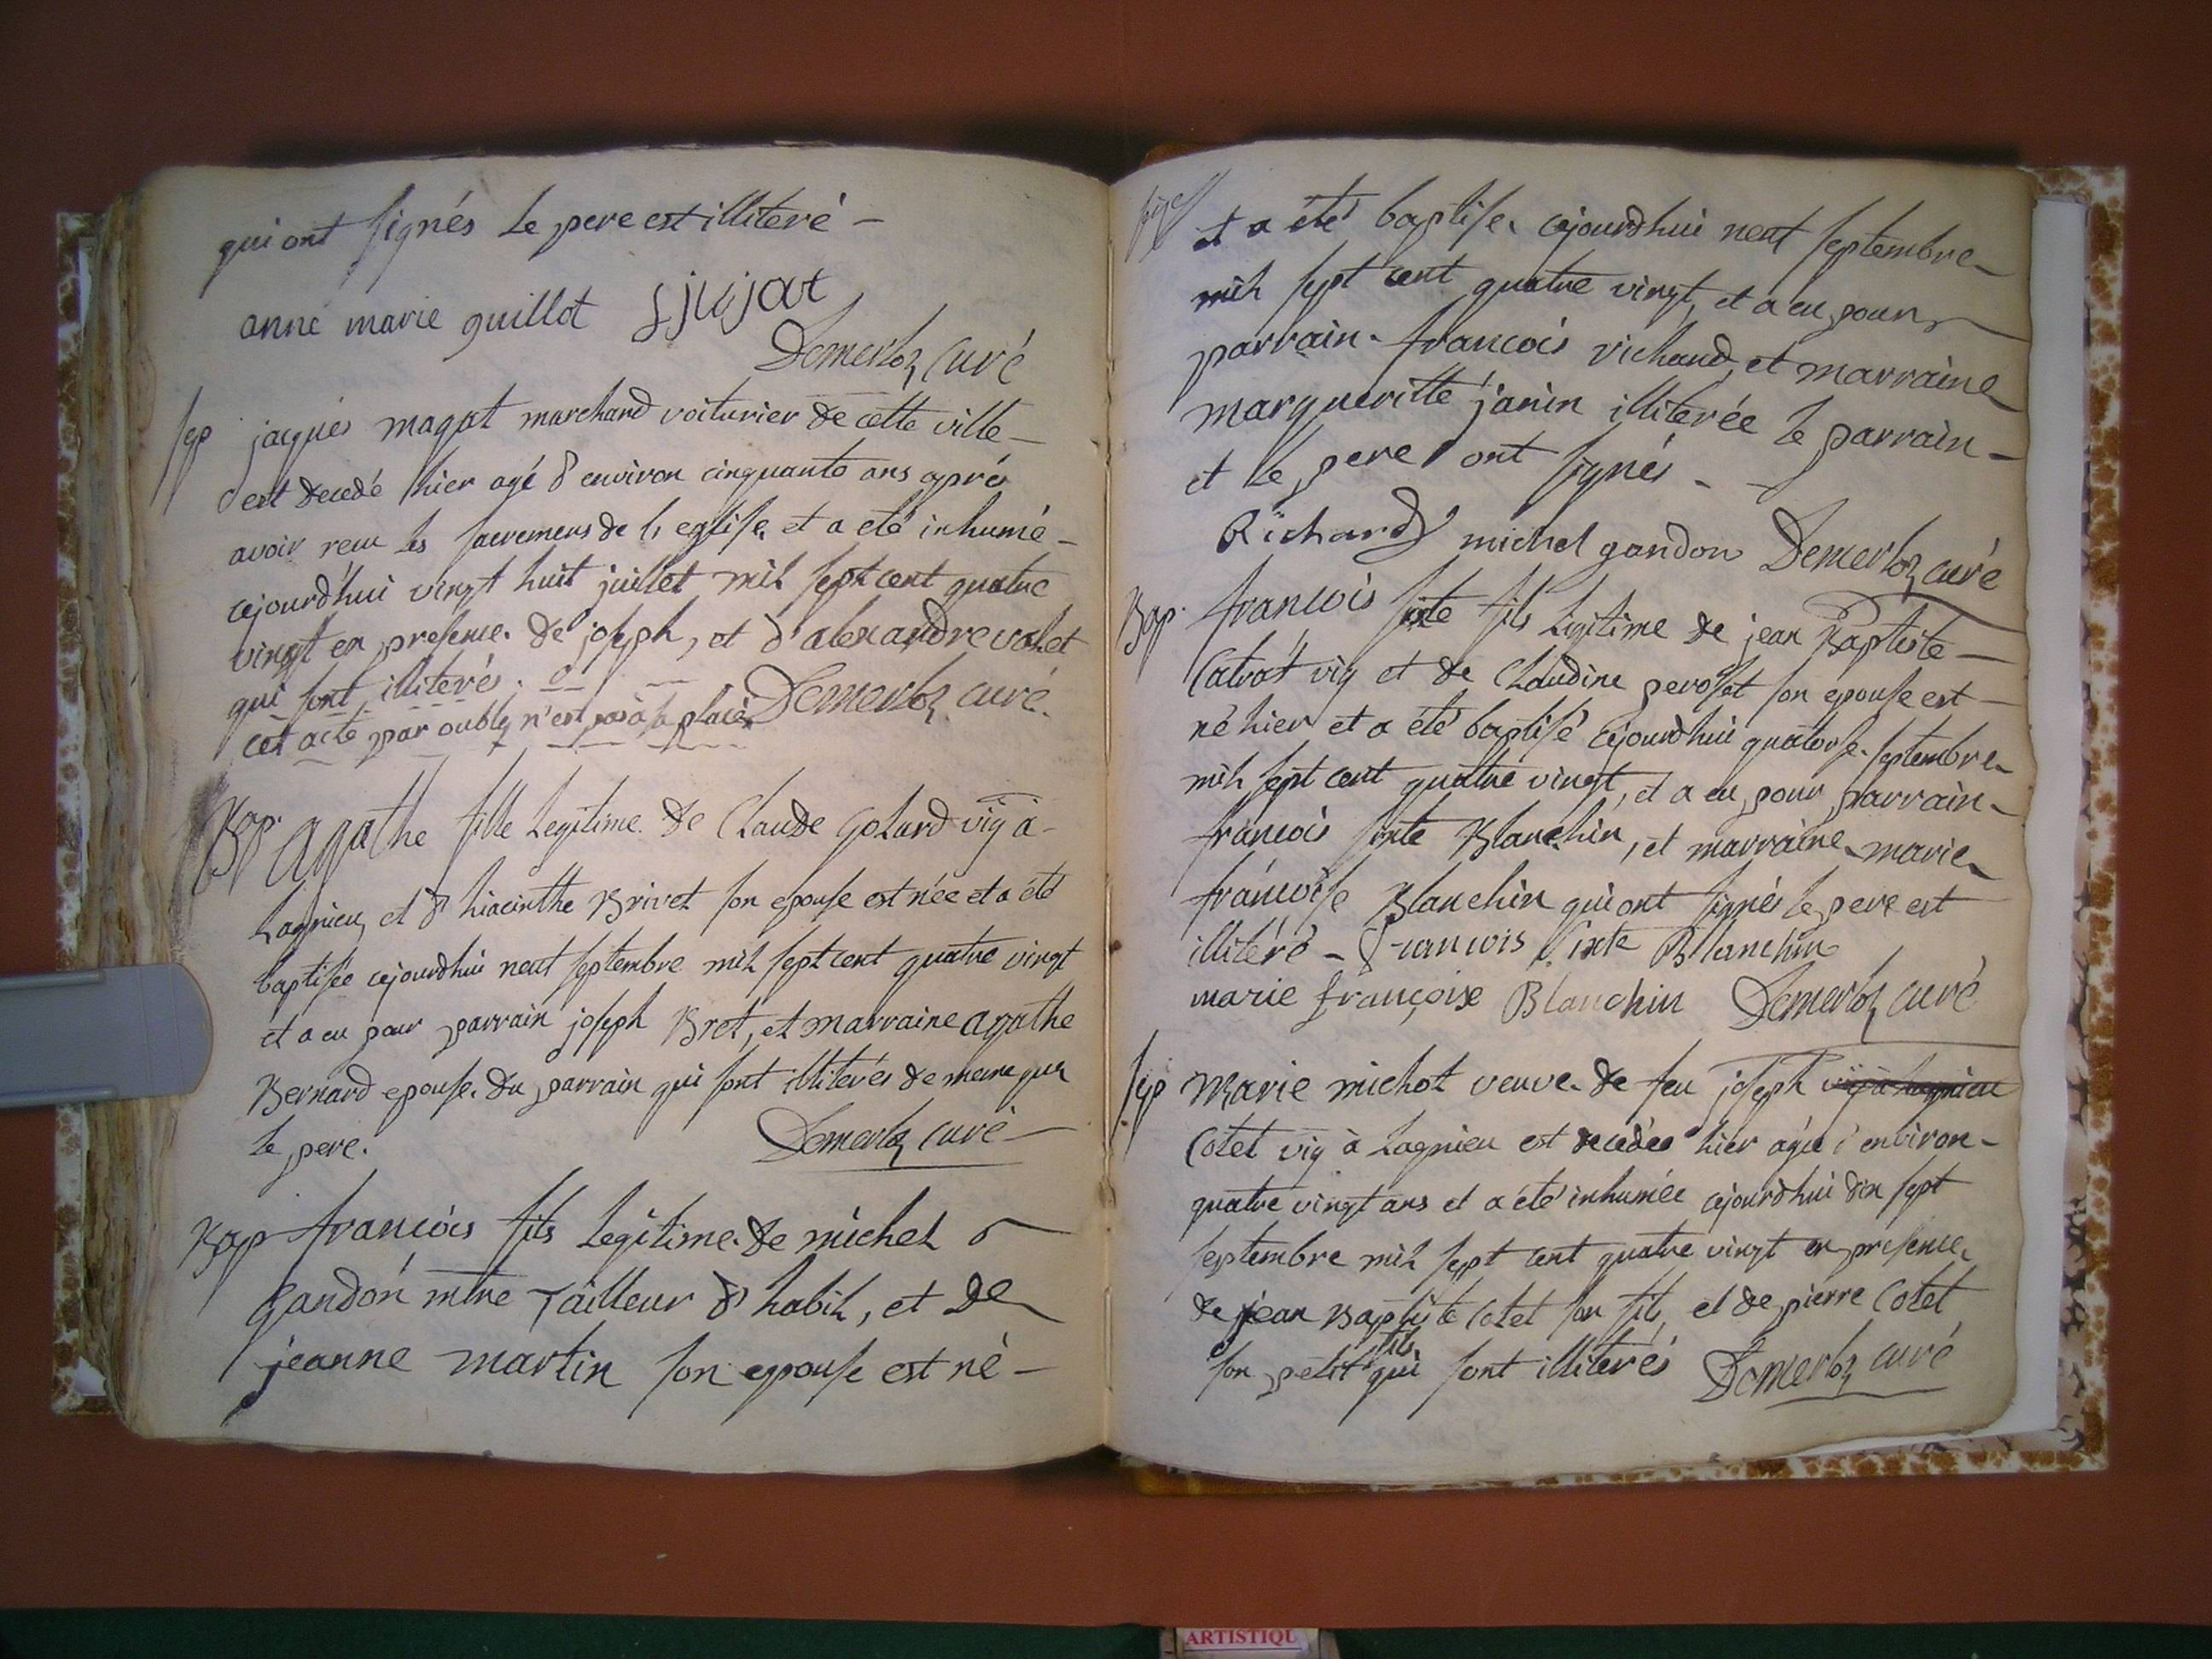 qui ont signés le pere est illiteré -
anne marie guillot jujat
Demerloz curé
sep jaques magat marchand voiturier de cette ville -
est decedé hier agé d'environ cinquante ans aprés
avoir reçu les sacremens de l'eglise et a été inhumé -
cejourd'hui vingt huit juillet mil sept cent quatre
vingt en presence de joseph, et d'alexandre volet
qui sont illiterés.
cet acte par oubly n'est pas à sa place Demerloz curé.
Bap. agathe fille legitime de Claude golard vig à -
Lagnieu, et d'hiacinthe Brivet son epouse est née et a été
baptisée cejourdhui neuf septembre mil sept cent quatre vingt
et a eu pour parrain joseph Bret, et marraine agathe
Bernard epouse du parrain qui sont illiterés de meme que
le pere. Demerloz curé -
Bap francois fils legitime de michel
gandon mtre Tailleur d'habit, et de
jeanne martin son epouse est né -
et a été baptisé cejourdhui neuf septembre
mil sept cent quatre vingt, et a eu pour
parrain francois richard, et marraine
margueritte janin illiterée le parrain -
et le pere ont signés -
Richard michel gandon Demerloz curé
Bap. francois sixte fils legitime de jean Baptiste -
Calvat vig et de Claudine peroset son epouse est -
né hier et a été baptisé cejourdhui quatorse septembre
mil sept cent quatre vingt, et a eu pour parrain -
francois sixte Blanchin, et marraine marie
francoise Blanchin qui ont signés le pere est
illiteré - Francois Sixte Blanchin
marie françoise Blanchin Demerloz curé
sep Marie michot veuve de feu joseph vig à lagnieu
Cotet vig à Lagnieu est decedée hier agée d'environ -
quatre vingt ans et a été inhumée cejourdhui dix sept
septembre mil sept cent quatre vingt en presence
de jean Baptiste Cotet son fils, et de pierre Cotet
son petit fils qui sont illiterés Demerloz curé
ARTISTIQU